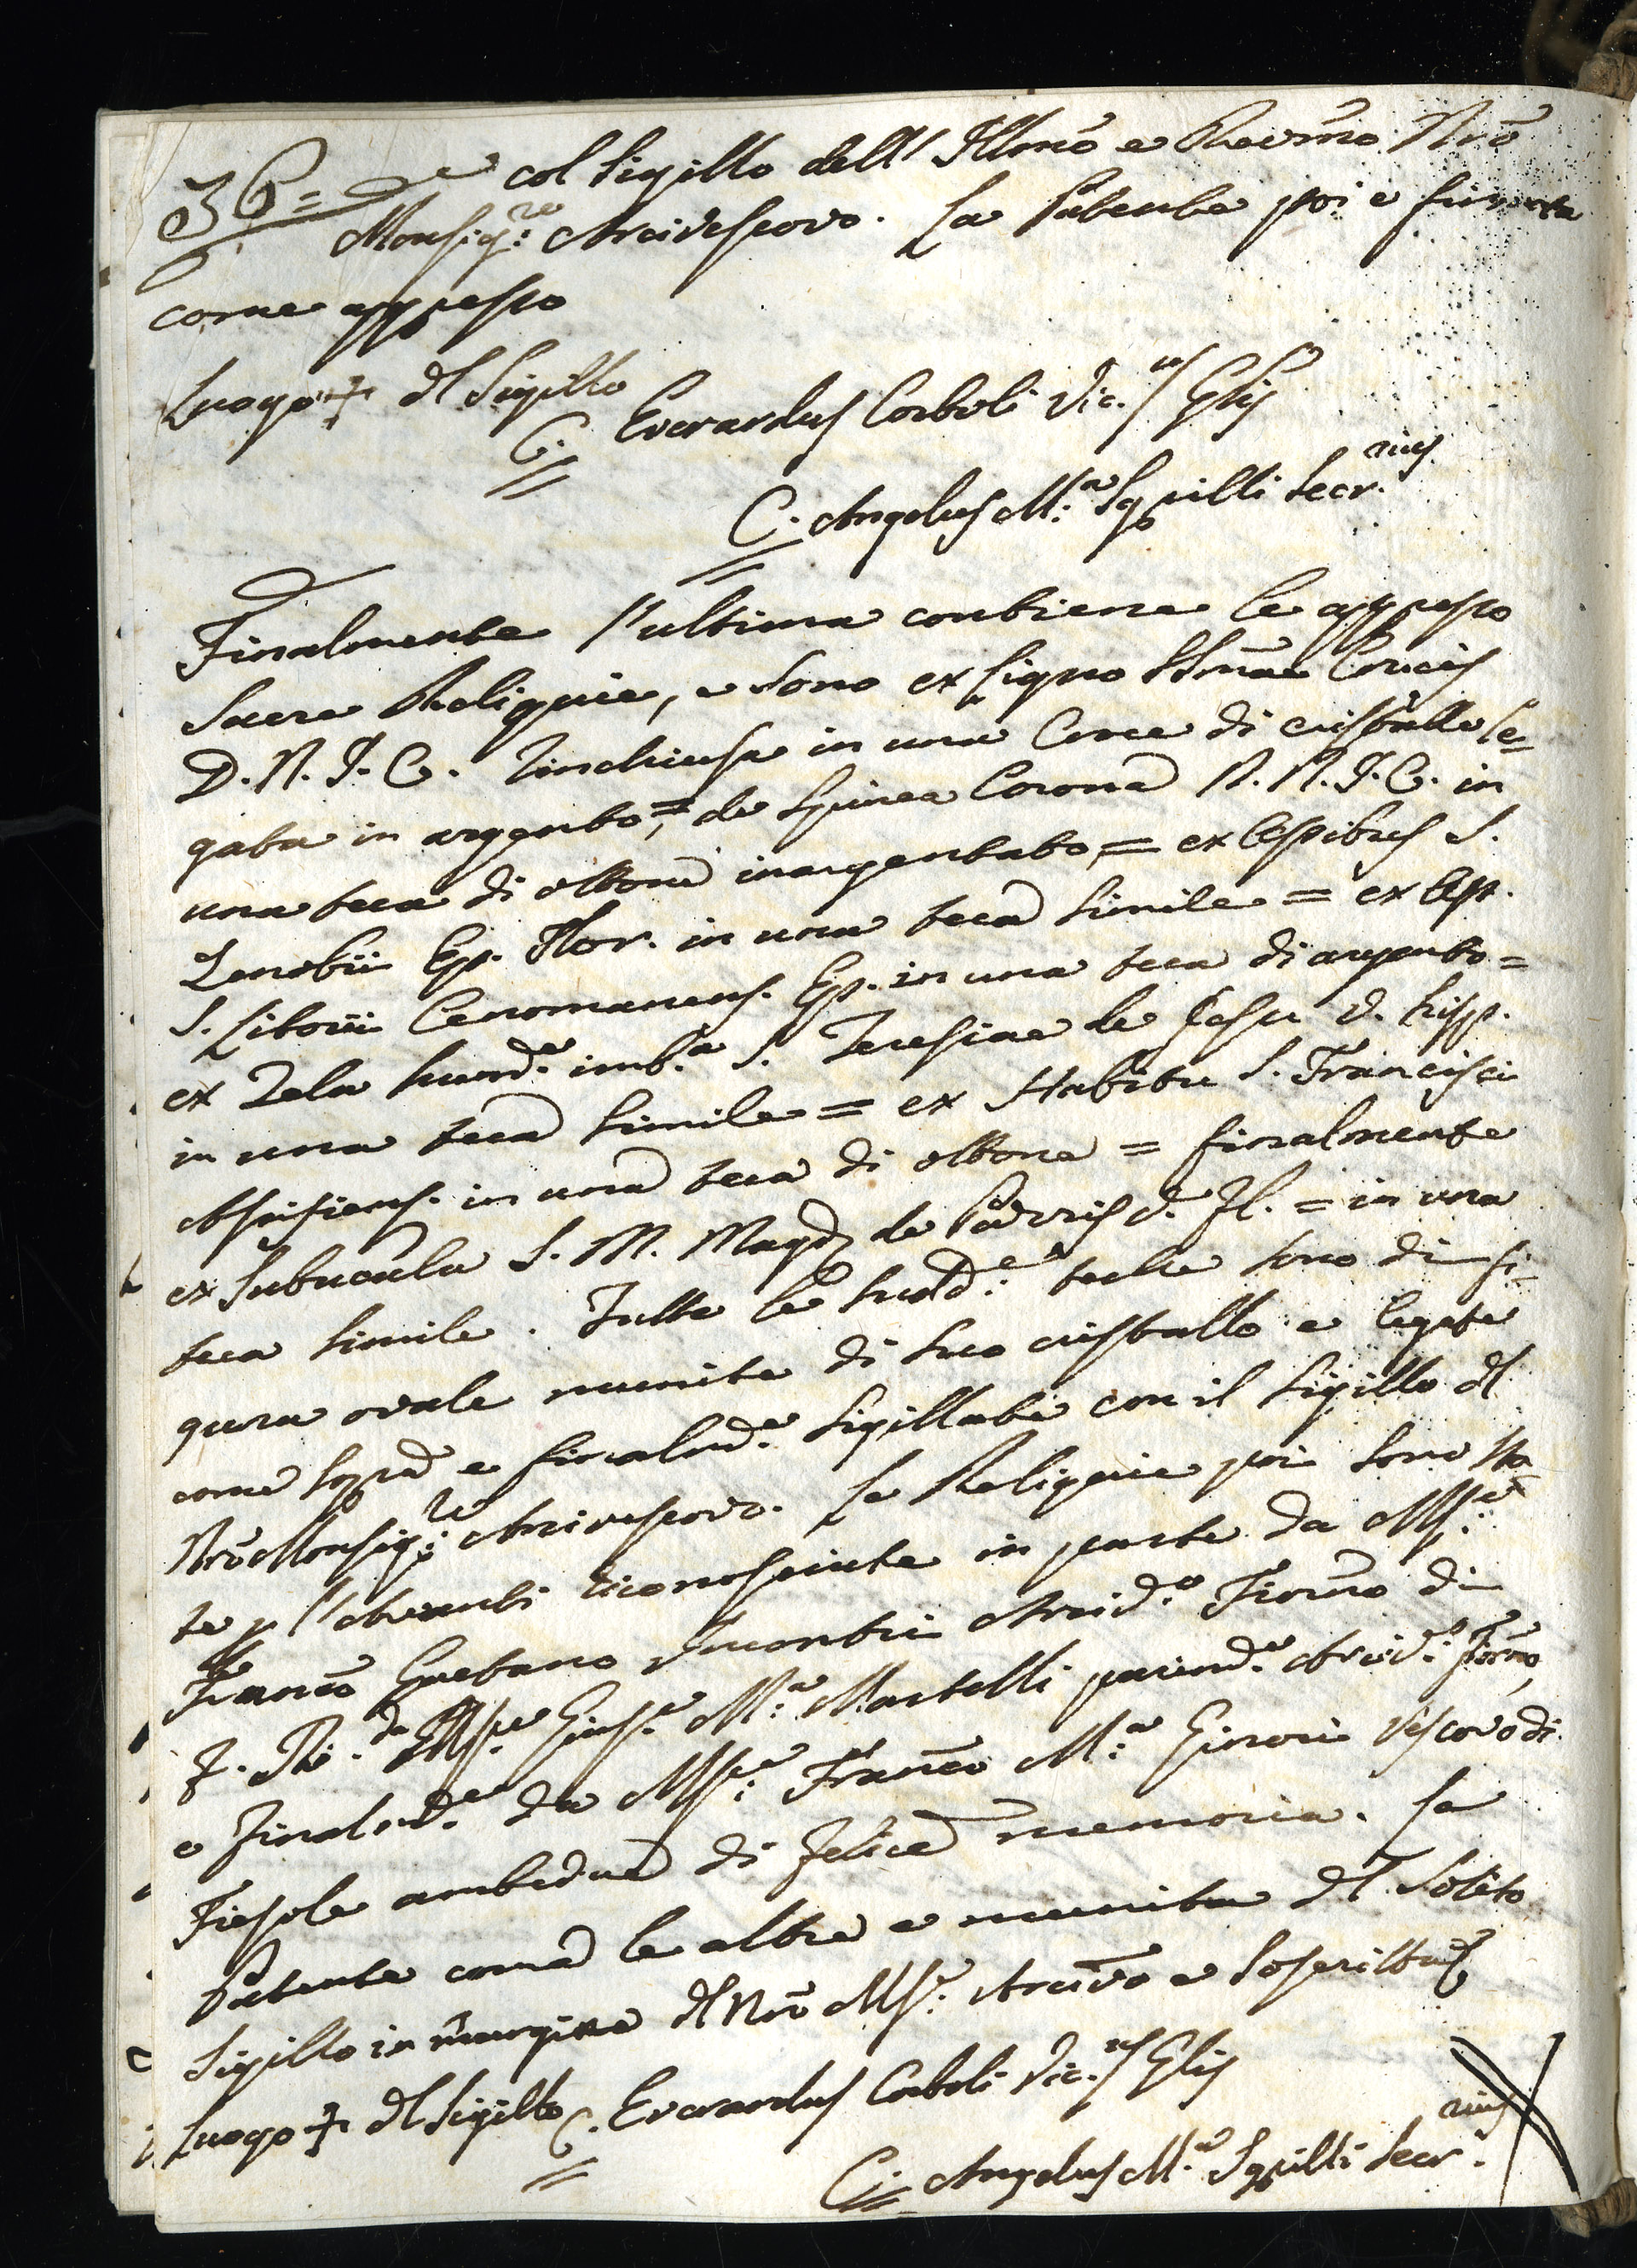 36= col Sigillo dell' Illmõ e Revmõ Nrõ
Monsig:re Arcivescovo. La Patente poi e firmata
come appresso
Luogo + dl Sigillo
C. Everardus Corboli Vic.us Glis
C. Angelus M:a Squilli Secr.rius
Finalmente l'ultima contiene le appresso
Sacre Reliquie, e sono ex Ligno SSmae Crucis
D. N. J. C. rinchiusa in una Croce di cristallo le=
gata in argento, = de Spinea Corona N. N. J. C. in
una teca di ottone inargentato, = ex Ossibus S.
Zenobii Ep. Flor. in una teca simile = ex Oss.
S. Liborii Cenomanens. Ep. in una teca di argento =
ex Tela sangd.e imb.a S. Teresiae de Jesu V. hisp.
in una teca simile = ex Habitu S. Francisci
Assisiens. in una teca di ottone = finalmente
ex Subucula S. M. Magd. de Pazzis V. Fl. = in una
teca simile. Tutte le sudd:e teche sono di fi=
gura ovale munite di suo cristallo e legate
come sopra e finalmd.e sigillate con il sigillo dl
Nrõ Monsig:re Arcivescovo. Le Reliquie poi sono sta
te p l'avanti riconosciute in parte da Mss:re
Francõ Gaetano Incontri Arcid.o Fiornõ di
F. M. da Mss:re Gius.e M:a Martelli parimd.e Arcid.o Fiornõ,
e Finalmd.e da Mss:re Francõ M:a Ginori Vescovo di
Fiesole ambedue di felice memoria. La
Patente come le altre e munita dl Solito
Sigillo in margine dl Nrõ Mss:re Arcivõ e soscritta
Luogo + dl Sigillo C. Everardus Corboli Vic.us Glis
C. Angelus M.a Squilli Secr.rius